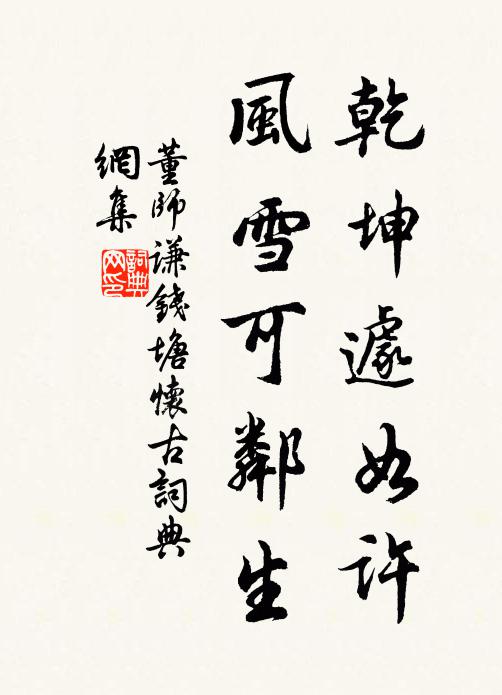 乾坤遽如許
風雪可鄰生
董師谦錢塘懷古詞典
網集
詞典
网印